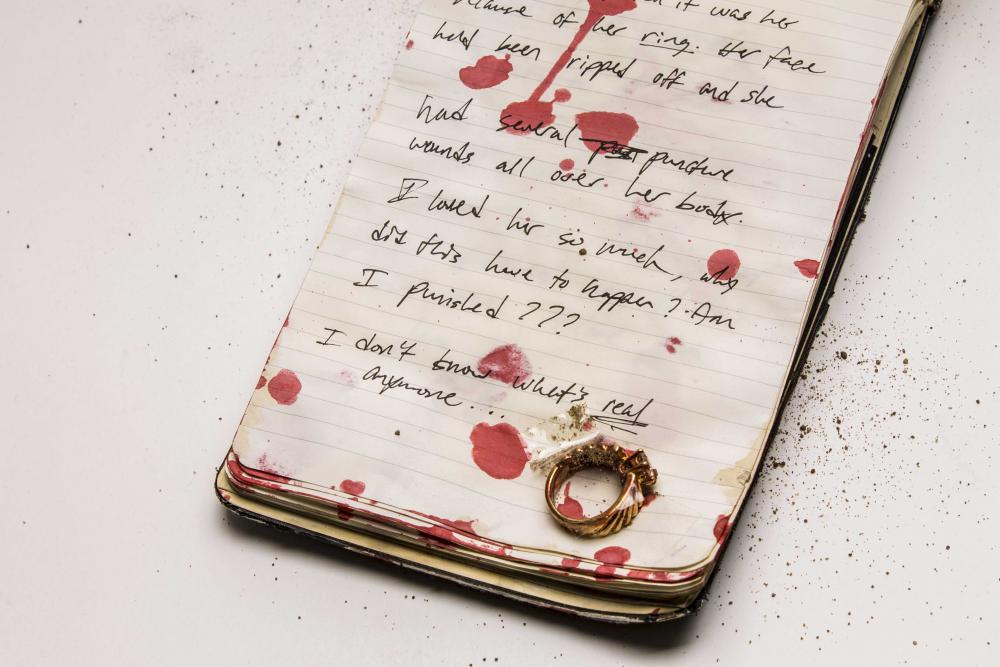 it was her
because of her ring. Her face
had been ripped off and she
had several puncture
wounds all over her body.
I loved her so much, why
did this have to happen? Am
I punished ???
I don't know what's real
anymore...